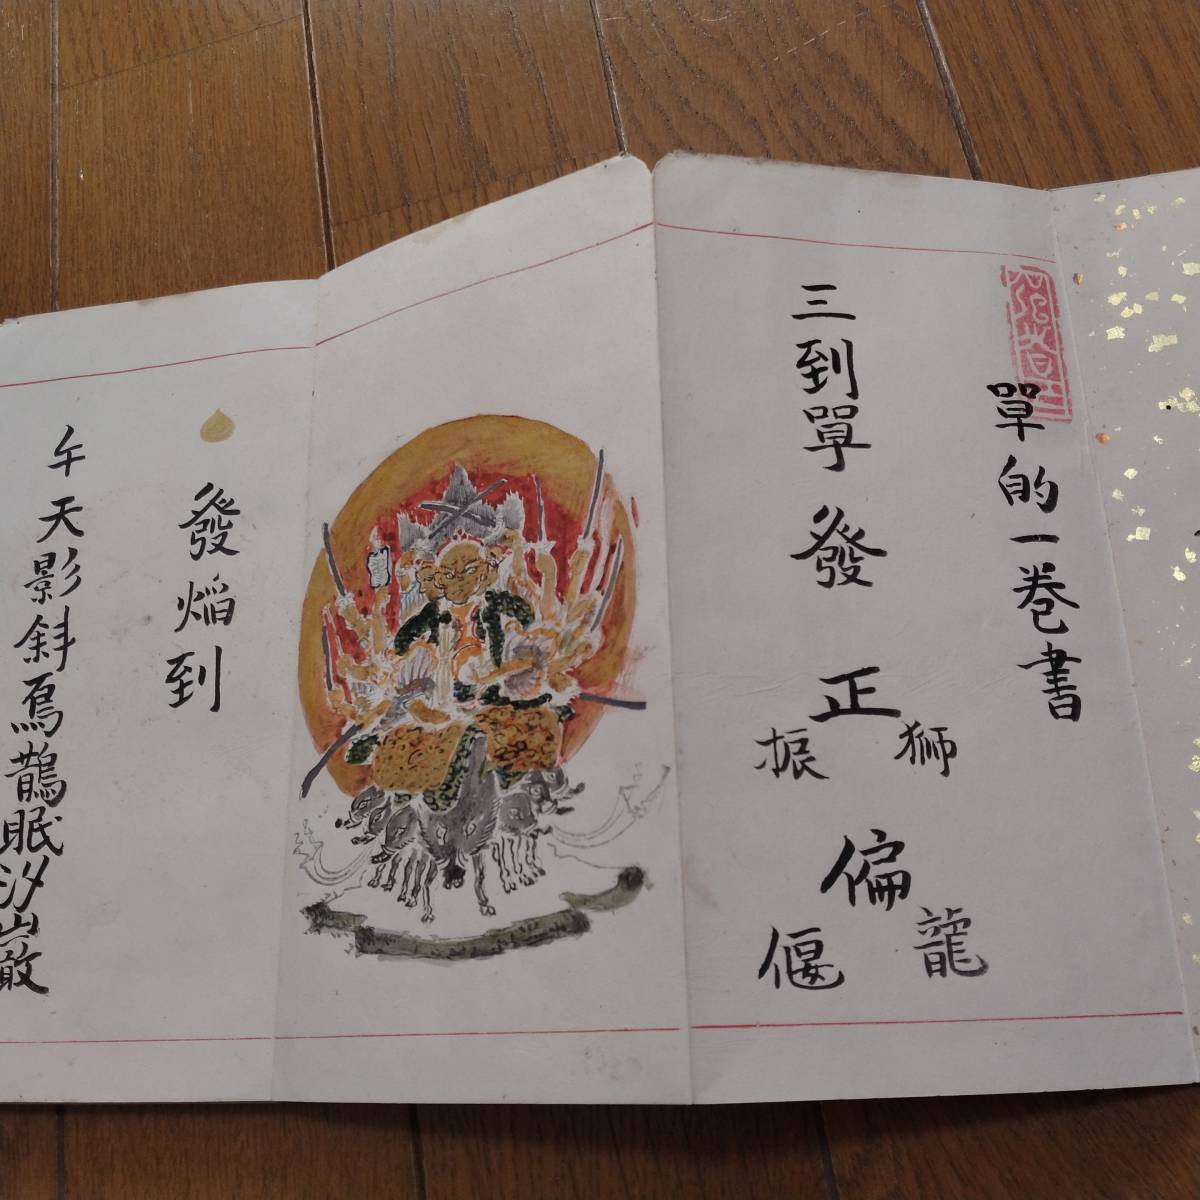 單的一巻書
三到單發
正
獅
振
偏
龍
偃
發焔到
午天影斜鳥鵲眠汐巌